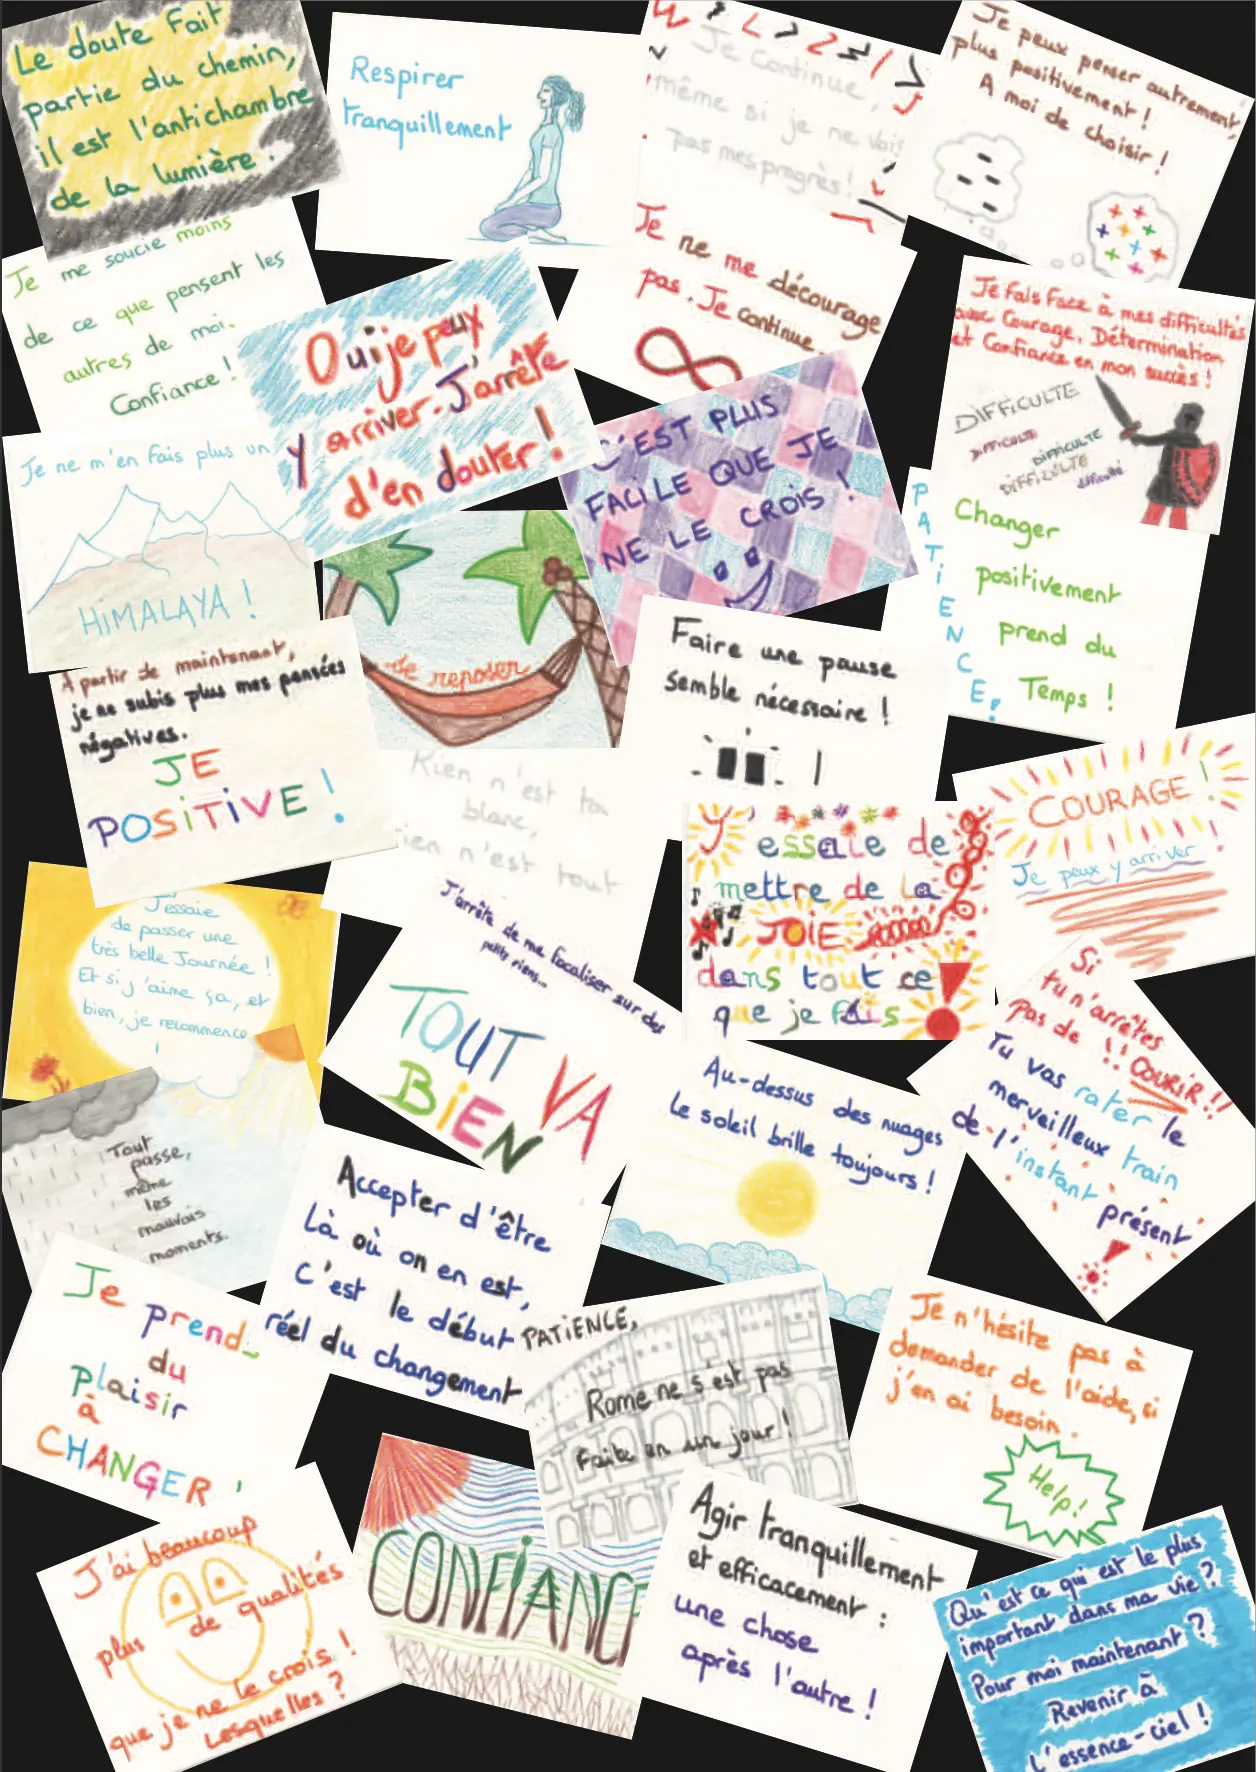 Le doute fait
partie du chemin,
il est l'antichambre
de la lumière.
Respirer
tranquillement
Je continue,
même si je ne vois
pas mes progrès !
Je peux penser autrement,
plus positivement !
A moi de choisir !
Je me soucie moins
de ce que pensent les
autres de moi.
Confiance !
Oui je peux
y arriver. J'arrête
d'en douter !
Je ne me décourage
pas. Je continue.
Je fais face à mes difficultés
avec Courage, Détermination
et Confiance en mon succès !
DIFFICULTE
DIFFICULTE
DIFFICULTE
DIFFICULTE
difficulté
Je ne m'en fais plus un
HIMALAYA !
C'EST PLUS
FACILE QUE JE
NE LE CROIS !
PATIENCE !
Changer
positivement
prend du
Temps !
Je reposer
A partir de maintenant,
je ne subis plus mes pensées
négatives.
JE
POSITIVE !
Faire une pause
semble nécessaire !
Rien n'est
blanc,
rien n'est tout
COURAGE !
Je peux y arriver !
J'essaie de
mettre de la
JOIE
dans tout ce
que je fais
J'essaie
de passer une
très belle Journée !
Et si j'aime ça, et
bien, je recommence
!
J'arrête de me focaliser sur des
petits riens...
TOUT VA
BIEN
Si
tu n'arrêtes
pas de COURIR !!
Tu vas rater le
merveilleux train
de l'instant
présent
!
Au-dessus des nuages
le soleil brille toujours !
Tout
passe,
même
les
mauvais
moments.
Accepter d'être
là où on en est,
C'est le début
réel du changement
Je prend
du
plaisir
à
CHANGER !
PATIENCE,
Rome ne s'est pas
faite en un jour !
Je n'hésite pas à
demander de l'aide, si
j'en ai besoin.
Help !
J'ai beaucoup
plus de qualités
que je ne le crois !
Lesquelles ?
CONFIANC
Agir tranquillement
et efficacement :
une chose
après l'autre !
Qu'est ce qui est le plus
important dans ma vie ?
Pour moi maintenant ?
Revenir à
L'essence-ciel !